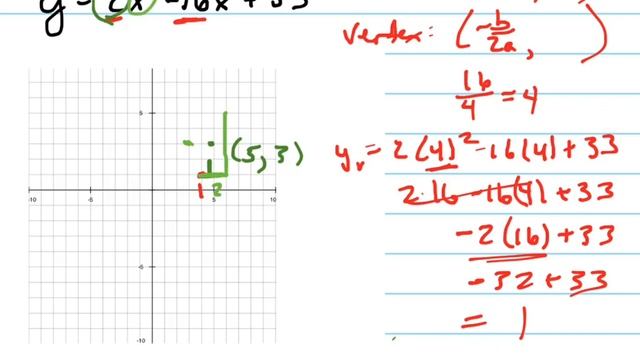 y = 2x² - 16x + 33
vertex: (-b/2a, )
16/4 = 4
yᵥ = 2(4)² - 16(4) + 33
2·16 - 16(4) + 33
-2(16) + 33
-32 + 33
= 1
5
(5, 3)
1 2
-10 -5 5 10
-5
-10